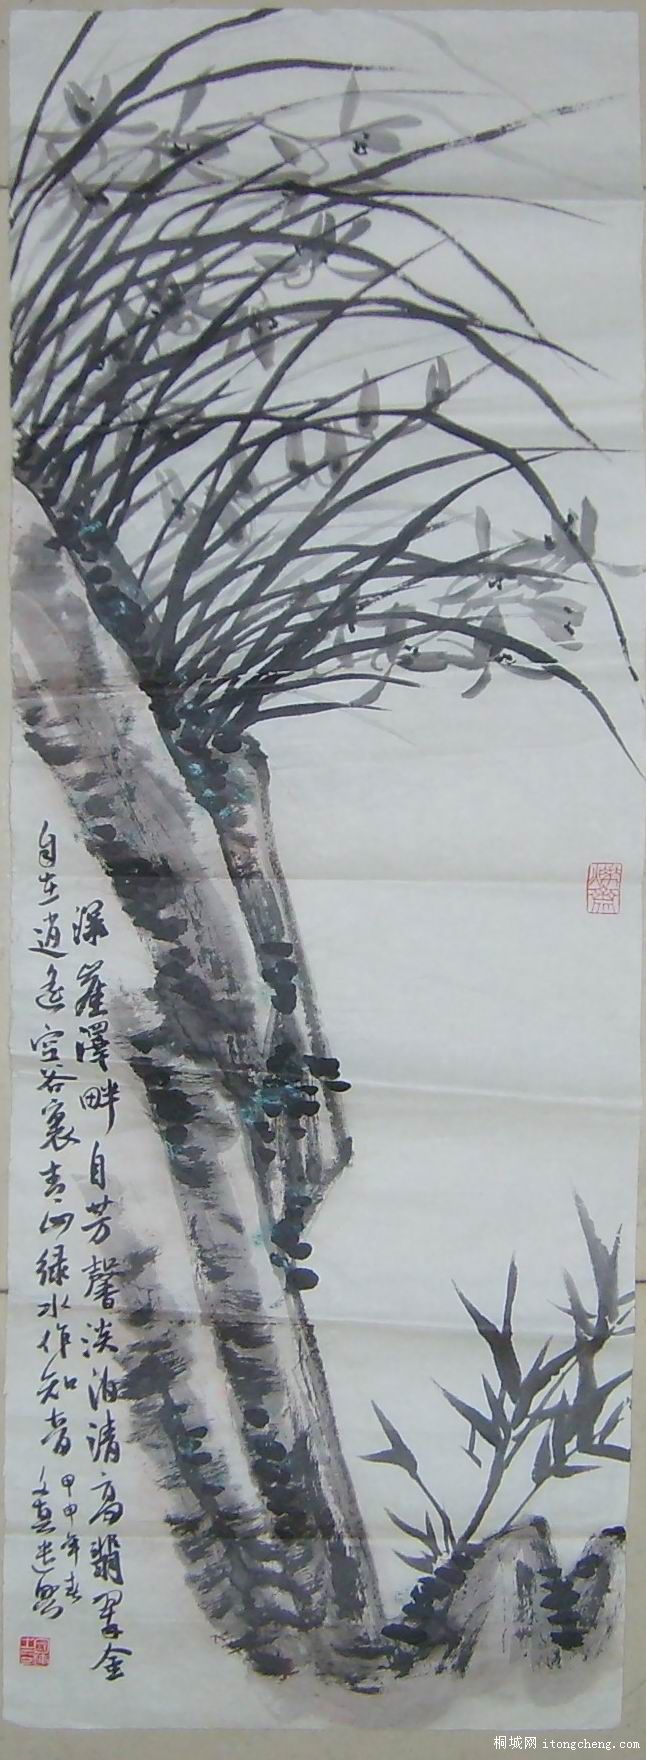 深崖泽畔自芳馨淡泊清高翡翠金
自在逍遥空谷裏青山绿水作知音
甲申年春
桐城网 itongcheng.com